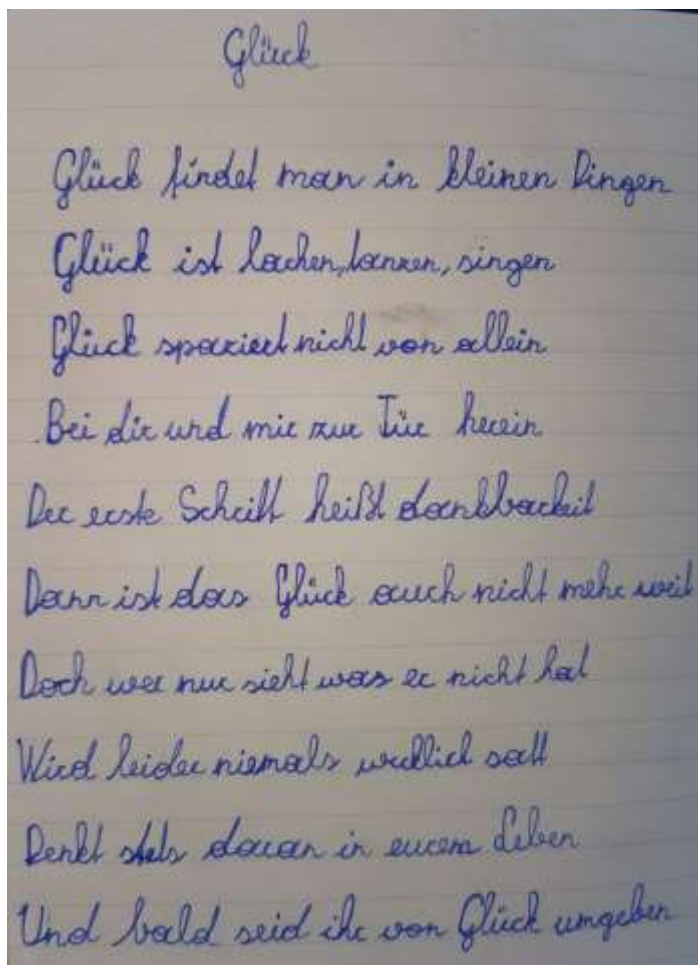 Glück
Glück findet man in kleinen Dingen
Glück ist lachen, tanzen, singen
Glück spaziert nicht von allein
Bei dir und mir zur Tür herein
Der erste Schritt heißt dankbarkeit
Dann ist das Glück auch nicht mehr weit
Doch wer nur sieht was er nicht hat
Wird leider niemals wirklich satt
Denkt stets daran in eurem Leben
Und bald seid ihr von Glück umgeben